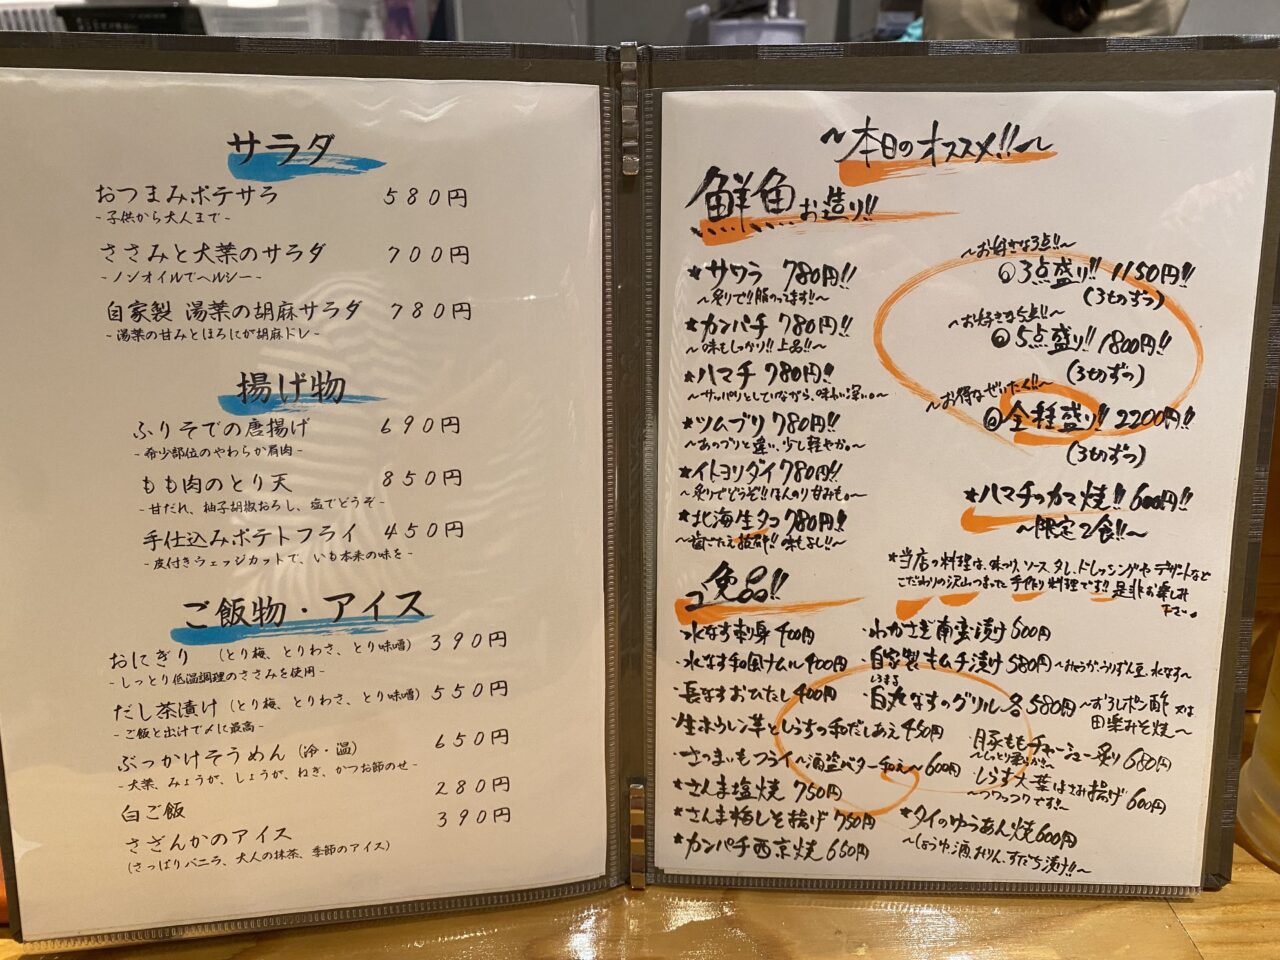 サラダ
おつまみポテサラ 580円
-子供から大人まで-
ささみと大葉のサラダ 700円
-ノンオイルでヘルシー-
自家製 湯葉の胡麻サラダ 780円
-湯葉の甘みとほろにが胡麻ドレ-
揚げ物
ふりそでの唐揚げ 690円
-希少部位のやわらか肩肉-
もも肉のとり天 850円
-甘だれ、柚子胡椒おろし、塩でどうぞ-
手仕込みポテトフライ 450円
-皮付きウェッジカットで、いも本来の味を-
ご飯物・アイス
おにぎり (とり梅、とりわさ、とり味噌) 390円
-しっとり低温調理のささみを使用-
だし茶漬け (とり梅、とりわさ、とり味噌) 550円
-ご飯と出汁で〆に最高-
ぶっかけそうめん (冷・温) 650円
-大葉、みょうが、しょうが、ねぎ、かつお節のせ-
白ご飯 280円
さざんかのアイス 390円
(さっぱりバニラ、大人の抹茶、季節のアイス)
~本日のオススメ!!~
鮮魚お造り!!
★サワラ 780円!!
~炙りで!!脂のってます!!~
★カンパチ 780円!!
~味もしっかり!!上品!!~
★ハマチ 780円!!
~サッパリとしていながら、味わい深い。~
★ツムブリ 780円!!
~あのブリと違い、少し軽やか。~
★イトヨリダイ 780円!!
~炙りでどうぞ!!ほんのり甘みも。~
★北海生タコ 780円!!
~歯ごたえ抜群!!味もよし!!~
~お好きな3点!!~
◎3点盛り!! 1150円!!
(3切ずつ)
~お好きな5点!!~
◎5点盛り!! 1800円!!
(3切ずつ)
~お得なぜいたく!!~
◎全種盛り!! 2200円!!
(3切ずつ)
★ハマチのカマ焼!! 600円!!
~限定2食!!~
★当店の料理は、味つけ、ソース、タレ、ドレッシングやデザートなど
こだわりの沢山つまった手作り料理です!!是非お楽しみ
下さい。
一品!!
・水なす刺身 400円
・水なす和風ナムル 400円
・長なすおひたし 400円
・生ホウレン草としらすの和だしあえ 450円
・さつまいもフライ~酒盗バター和え~ 600円
★さんま塩焼 750円
★さんま梅しそ揚げ 750円
★カンパチ西京焼 650円
・わかさぎ南蛮漬け 600円
・自家製キムチ漬け 580円 ~みょうが、うりずん豆、水なす~
しろまる
・白丸なすのグリル 各580円 ~おろしポン酢 又は
田楽みそ焼~
・豚ももチャーシュー炙り 680円
~しっとり柔らか!!~
・しらす大葉はさみ揚げ 600円
~フワッフワです!!~
★タイのゆうあん焼 600円
~しょうゆ、酒、みりん、すだち漬け!!~